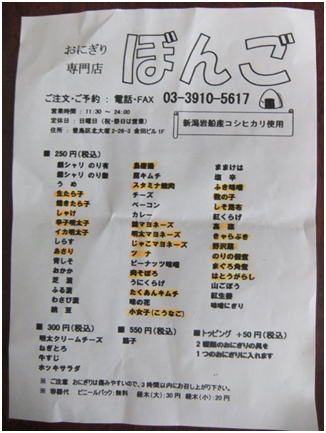 おにぎり
専門店
ぼんご
ご注文・ご予約 : 電話・FAX 03-3910-5617
営業時間 : 11:30 ～ 24:00
定休日 : 日曜日（祝・祭日は営業）
住所 : 豊島区北大塚2-26-3 金田ビル1F
新潟岩船産コシヒカリ使用
■ 250円(税込)
銀シャリ のり有
銀シャリ のり無
うめ
生たら子
焼きたら子
しゃけ
辛子明太子
イカ明太子
しらす
あさり
青しそ
おかか
芝漬
ふる漬
わさび漬
納豆
鳥唐揚
豚キムチ
スタミナ焼肉
チーズ
ベーコン
カレー
鮭マヨネーズ
明太マヨネーズ
じゃこマヨネーズ
ツナ
ピーナッツ味噌
肉そぼろ
うにくらげ
たくあんキムチ
味の花
小女子(こうなご)
ままけは
塩辛
ふき味噌
数の子
しそ昆布
紅くらげ
高菜
きゃらぶき
野沢菜
のりの佃煮
まぐろ角煮
はとうがらし
山ごぼう
紅生姜
味噌にぎり
■ 300円(税込)
明太クリームチーズ
ねぎとろ
牛すじ
ホッキサラダ
■ 550円(税込)
筋子
■トッピング +50円(税込)
2種類のおにぎりの具を
1つのおにぎりに入れます
※ ご注意 おにぎりは傷みやすいので、3時間以内にお召し上がり下さい。
※ 容器代 ビニールパック:無料 経木(大):30円 経木(小):20円